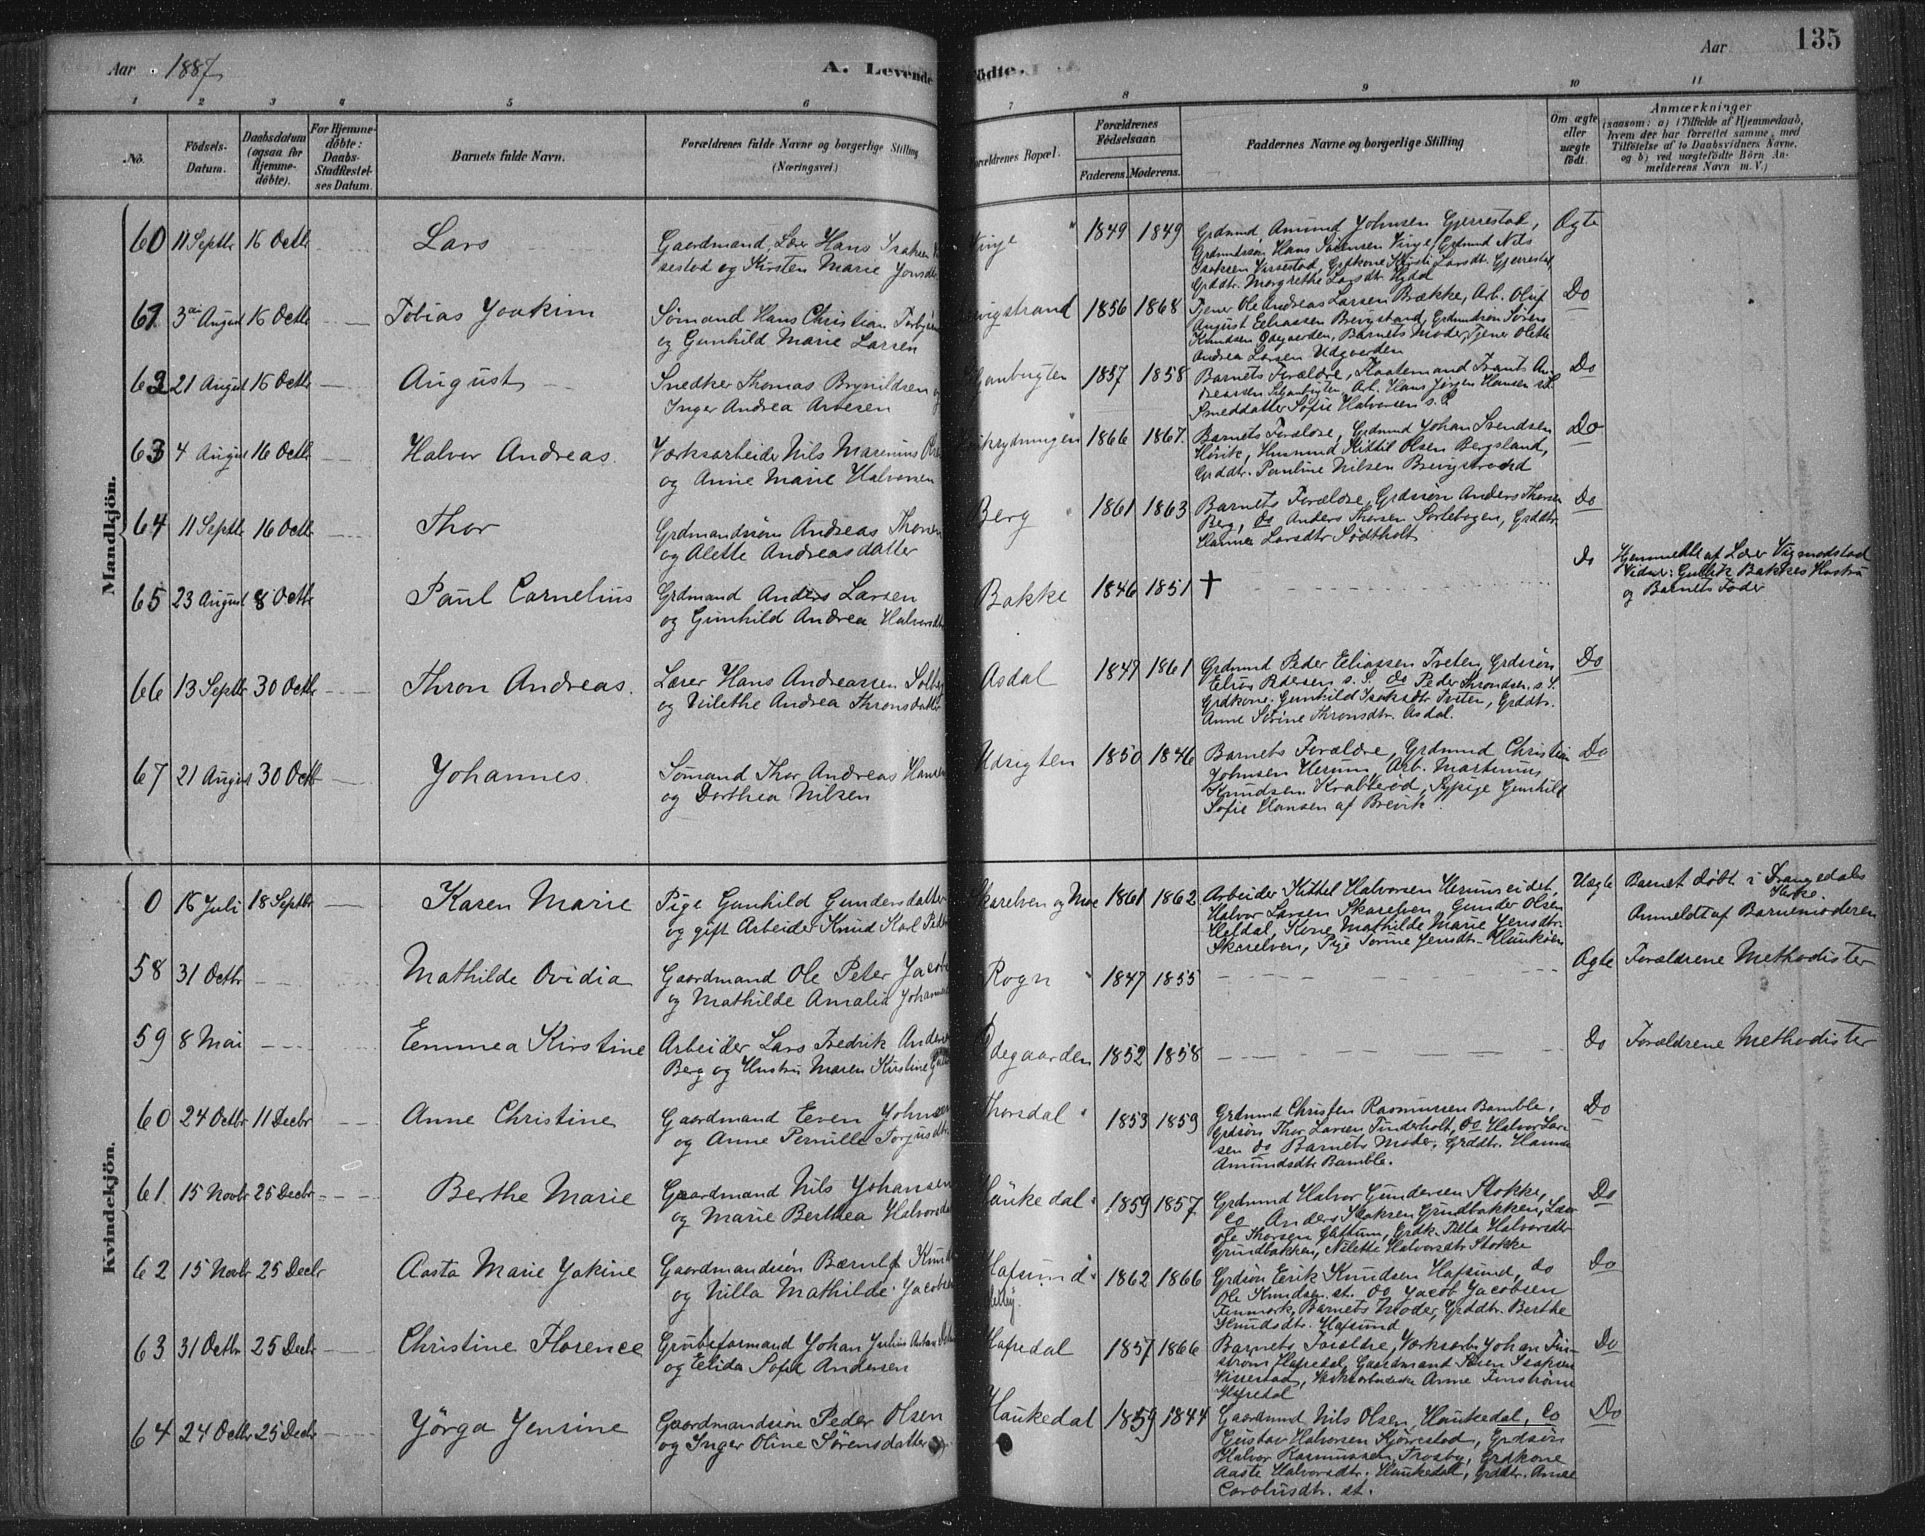 Aar 1887
A. Levende
Födte.
Aar
135
1 2 3 4 5 6 7 8 9 10 11
No.
Födsels-
Datum.
Daabsdatum
(ogsaa for
Hjemme-
döbte).
For Hjemme-
döbte:
Daabs-
Stadfæstel-
ses Datum.
Barnets fulde Navn.
Forældrenes fulde Navne og borgerlige Stilling
(Næringsvei)
Forældrenes Bopæl.
Forældrenes
Födselsaar.
Faderens. Moderens.
Faddernes Navne og borgerlige Stilling
Om ægte
eller
uægte
födt.
Anmærkninger
(saasom: a) i Tilfælde af Hjemmedaab,
hvem der har forrettet samme, med
Tilföielse af to Daabsvidners Navne,
og b) ved uægtefödte Börn An-
melderens Navn m. V.)
Mandkjön.
60 11 Septbr 16 Octbr Lars
Gaardmand, Lærer Hans Isaksen
og Kirsten Marie
1849 1849
Grdmnd Amund Johnsen Gjerrestad,
Ægte
61 3 August 16 Octbr Tobias Joakim
Sømand Hans Christian
og Gunhild Marie Larsen
1856 1868
Tjener Ole Andreas Larsen Brække, Arb. Oluf
August Eliassen Brevigstrand, Grdmndsøn Søren
Knudsen Ødegaarden, Barnets Moder, Tjener Olette
Andrea Larsen Udgaarden
Do
62 21 August 16 Octbr August
Snedker Thomas Brynildsen
Inger Andrea
1857 1858
Barnets Forældre,
Arb. Hans Jørgen Hansen
Smeddatter Sofie Halvorsen s. S.
Do
63 4 August 16 Octbr Halvor Andreas
Værksarbeider Nils Marenius
og Anne Marie Halvorsen
1866 1867
Barnets Forældre, Grdmnd Johan Svendsen
Høvik, Husmnd Kittil Olsen Bergsland,
Grddtr. Pauline Nilsen Brevigstrand
Do
64 11 Septbr 16 Octbr Thor
Grdmandssøn Andreas Thorsen
og Alette Andreasdatter
Berg
1861 1863
Barnets Forældre, Grdssøn Anders Thorsen
Berg, do Anders Thorsen Sortebogen, Grddtr.
Hanna Larsdtr
Do
65 23 August 8 Octbr Paul Cornelius
Grdmand Anders Larsen
og Gunhild Andrea Halvorsdtr
Bakke
1846 1851 †
Do
Hjemmedbt af Lærer Vigmodstad
Vidner: Gullik Bakkes Hustru
og Barnets Fader
66 13 Septbr 30 Octbr Thron Andreas
Lærer Hans Andreassen
og Nilethe Andrea Thronsdatter
Asdal
1847 1861
Grdmnd Peder Eliassen Tveten, Grdssøn
Elias Pedersen s. S. do Peder Throndsen s. S.
Grdkone Gunhild Isaksdtr Tveten, Grddtr.
Anne Sørine Thronsdtr. Asdal.
Do
67 21 August 30 Octbr Johannes
Sømand Thor Andreas Hansen
og Dorthea Nilsen
1850 1846
Barnets Forældre, Grdmnd Christian
Johnsen Herum, Arb. Martinus
Knudsen Krabberød, Sypige Gunhild
Sofie Hansen af Brevik.
Do
Kvindekjön.
0 16 Juli 18 Septbr Karen Marie
Pige Gunhild Gundersdatter
og gift Arbeider Knud Karl
Skarelven og
1861 1862
Arbeider Kittel Halvorsen Herumseidet,
Halvor Larsen Skarelven, Gunder Olsen
Heldal, Kone Mathilde Marie Jensdtr.
Skarelven, Pige
Uægte
Barnet døbt i Drangedals
Kirke
Anmeldt af Barnemoderen
58 31 Octbr Mathilde Ovidia
Gaardmand Ole Peter Jacobs
og Mathilde Amalia
Rogn
1847 1855
Ægte
Forældrene Methodister
59 8 Mai Emmea Kirstine
Arbeider Lars Fredrik
Berg og Hustru Maren Kirstine
Ødegaarden
1852 1858
Do
Forældrene Methodister
60 24 Octbr 11 Decbr Anne Christine
Gaardmand Even Johnsen
og Anne Pernille Torjusdtr
Thorsdal
1853 1859
Grdmnd Christen Rasmussen Bamble,
Grdsøn Thor Larsen Tinderholt, do Halvor Lar-
sen do Barnets Moder, Grddtr. Hanna
Amundsdtr Bamble.
Do
61 15 Novbr 25 Decbr Berthe Marie
Gaardmand Nils Johansen
og Marie Berthea Halvorsd
Haukedal
1859 1857
Grdmnd Halvor Gundersen Stokke,
do Anders Isaksen Grundbakken, Lærer
Ole Thorsen
Grundbakken, Nilette Halvorsdtr Stokke
Do
62 15 Novbr 25 Decbr Aasta Marie Jakine
Gaardmandssøn Bærnlof
og Nilla Mathilde Jacobsen
Hafsund
1862 1866
Grdsøn Eerik Knudsen Hafsund, do
Ole Knudsen st. do Jacob Jacobsen
Finmark, Barnets Moder, Grddtr. Berthe
Knudsdtr. Hafsund
Do
63 31 Octbr 25 Decbr Christine Florence
Grubeformand Johan Julius
og Elida Sofie Andersen
Hafredal
1857 1866
Barnets Forældre, Værksarb. Johan Fin-
strøm Hafredal, Gaardmand
Anne Finstrøm
Hafredal
Do
64 24 Octbr 25 Decbr Jörga Jensine
Gaardmandssøn Peder Olsen
og Inger Oline Sørensdatter
Haukedal
1859 1844
Gaardmnd Nils Olsen, Haukedal, do
Gustav Halvorsen Kjørrestad, Grdsøn
Halvor Rasmussen Trosby, Grdkone
Aaste Halvorsdtr. Haukedal, Grddtr. Anne
Carolusdtr. st.
Do